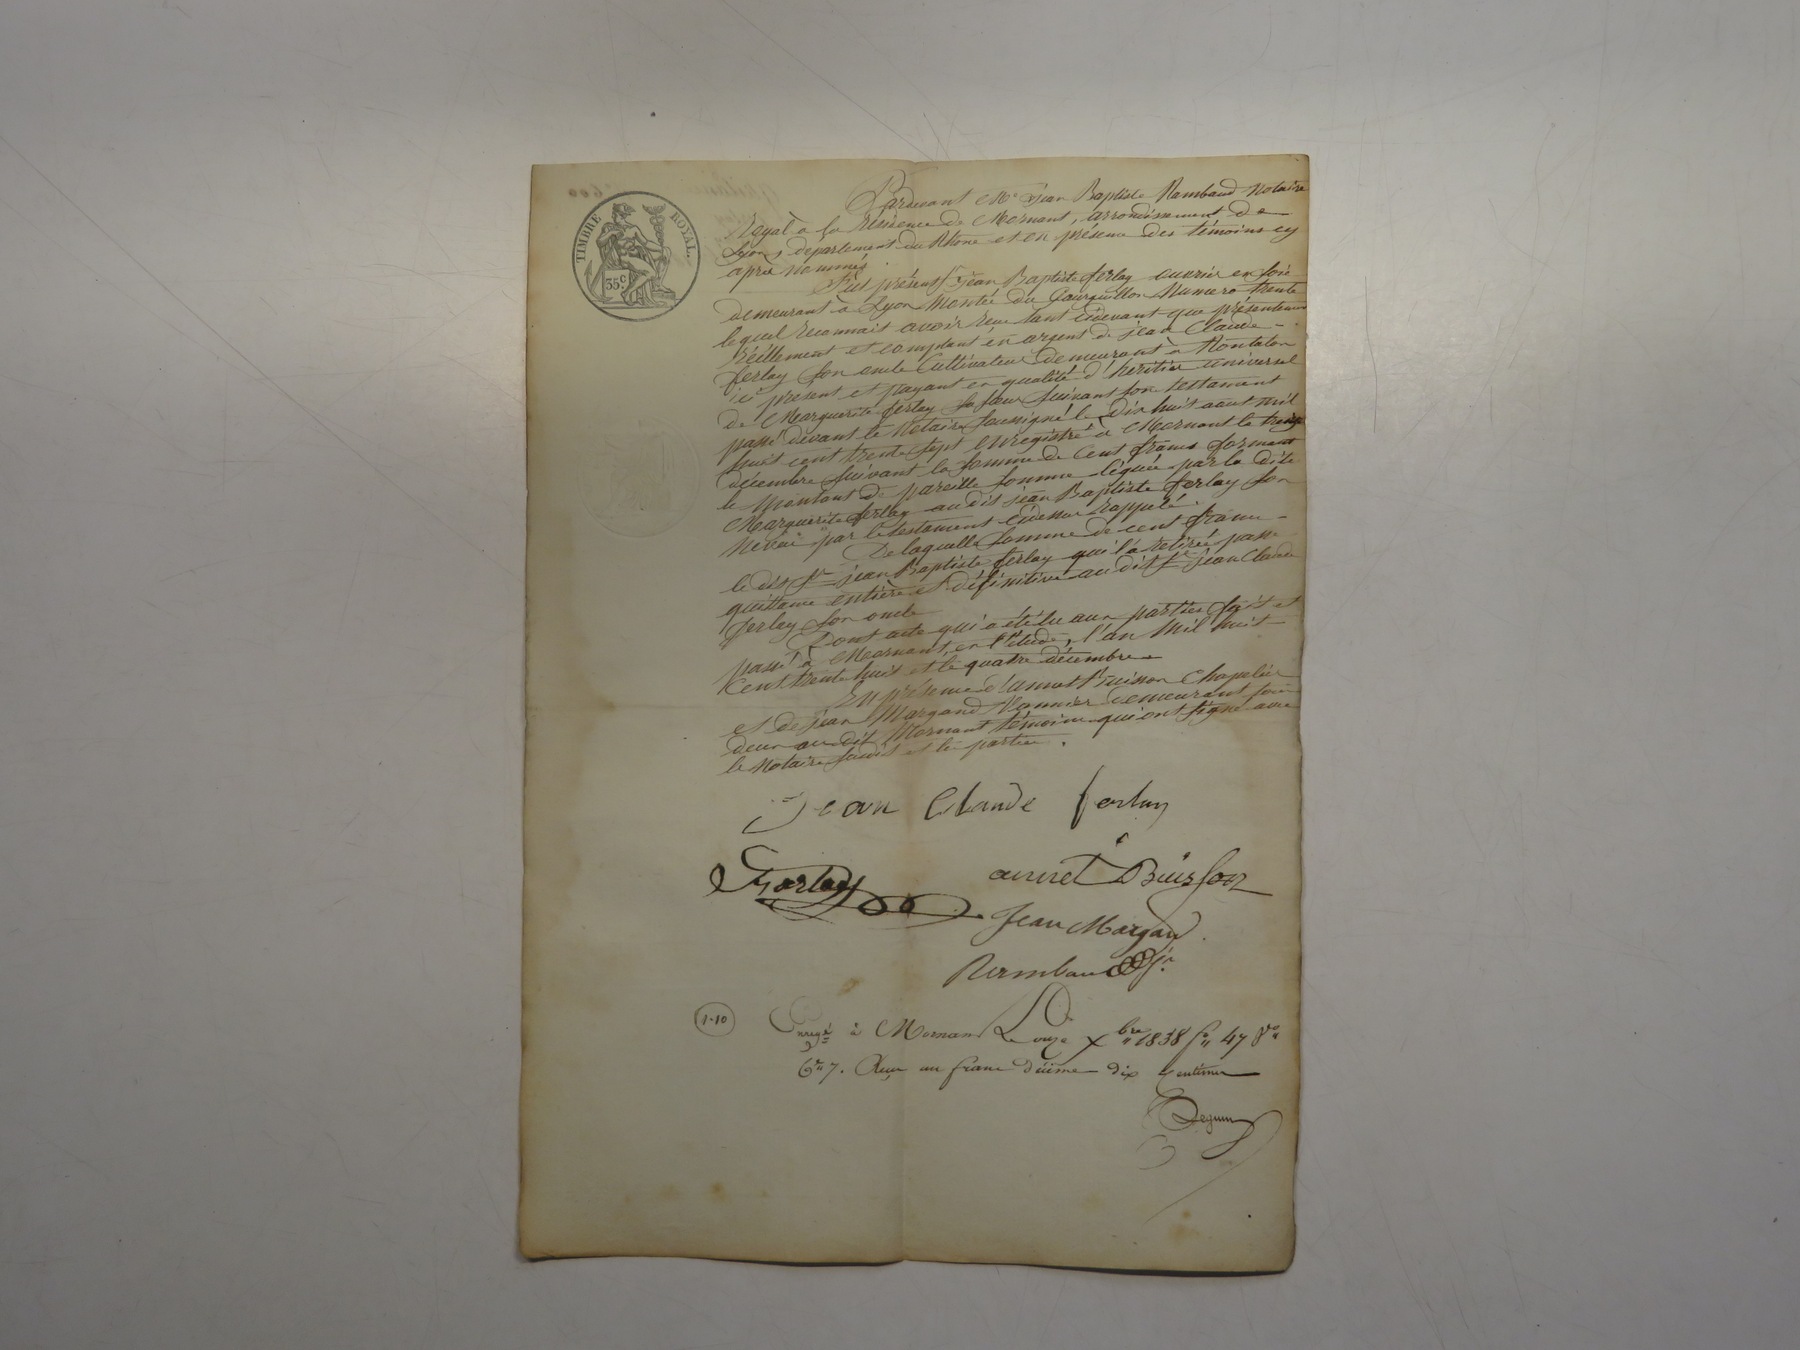 TIMBRE ROYAL.
35 C.
Pardevant Me Jean Baptiste Rambaud Notaire
Royal à la résidence de Mornant, arrondissement de
Lyon, département du Rhône et en présence des témoins cy
après nommés
S'est présenté Jean Baptiste ferlay ouvrier en soie
demeurant à Lyon Montée du Gourguillon Numero trente
lequel reconnait avoir reçu tant cidevant que présentement
réellement et comptant en argent de jean Claude
ferlay son oncle Cultivateur demeurant à Montalon
ici présent et payant en qualité d'héritier universel
de Marguerite ferlay sa sœur suivant son testament
passé devant le Notaire soussigné le dix huit aout mil
huit cent trente sept enregistré à Mornant le treize
décembre suivant la somme de cent francs formant
le montant de pareille somme léguée par la dite
Marguerite ferlay au dit jean Baptiste ferlay son
neveu par le testament cidessus rappelé.
De laquelle somme de cent francs
le dit Sr jean Baptiste ferlay qui l'a retirée passe
quittance entière et définitive au dit Sr jean Claude
ferlay son oncle
Dont acte qui a été lu aux parties fait et
passé à Mornant, en l'étude, l'an Mil huit
Cent trente huit et le quatre décembre
En présence d'annet Buisson Chapelier
et de jean Margand Vannier demeurant tous
deux au dit Mornant témoins qui ont signé avec
le Notaire susdit et les parties.
Jean Claude ferlay
Ferlay
annet Buisson
Jean Margand
Rambaud
1-10
Enregé à Mornant Le onze Xbre 1838 fo 47 Vo
Cse 7. Reçu un franc décime dix centimes